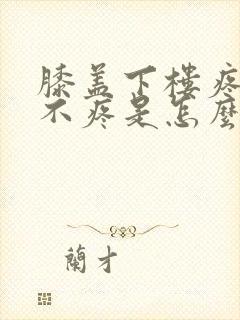 膝盖下樓疼
不疼是怎麽
蘭才